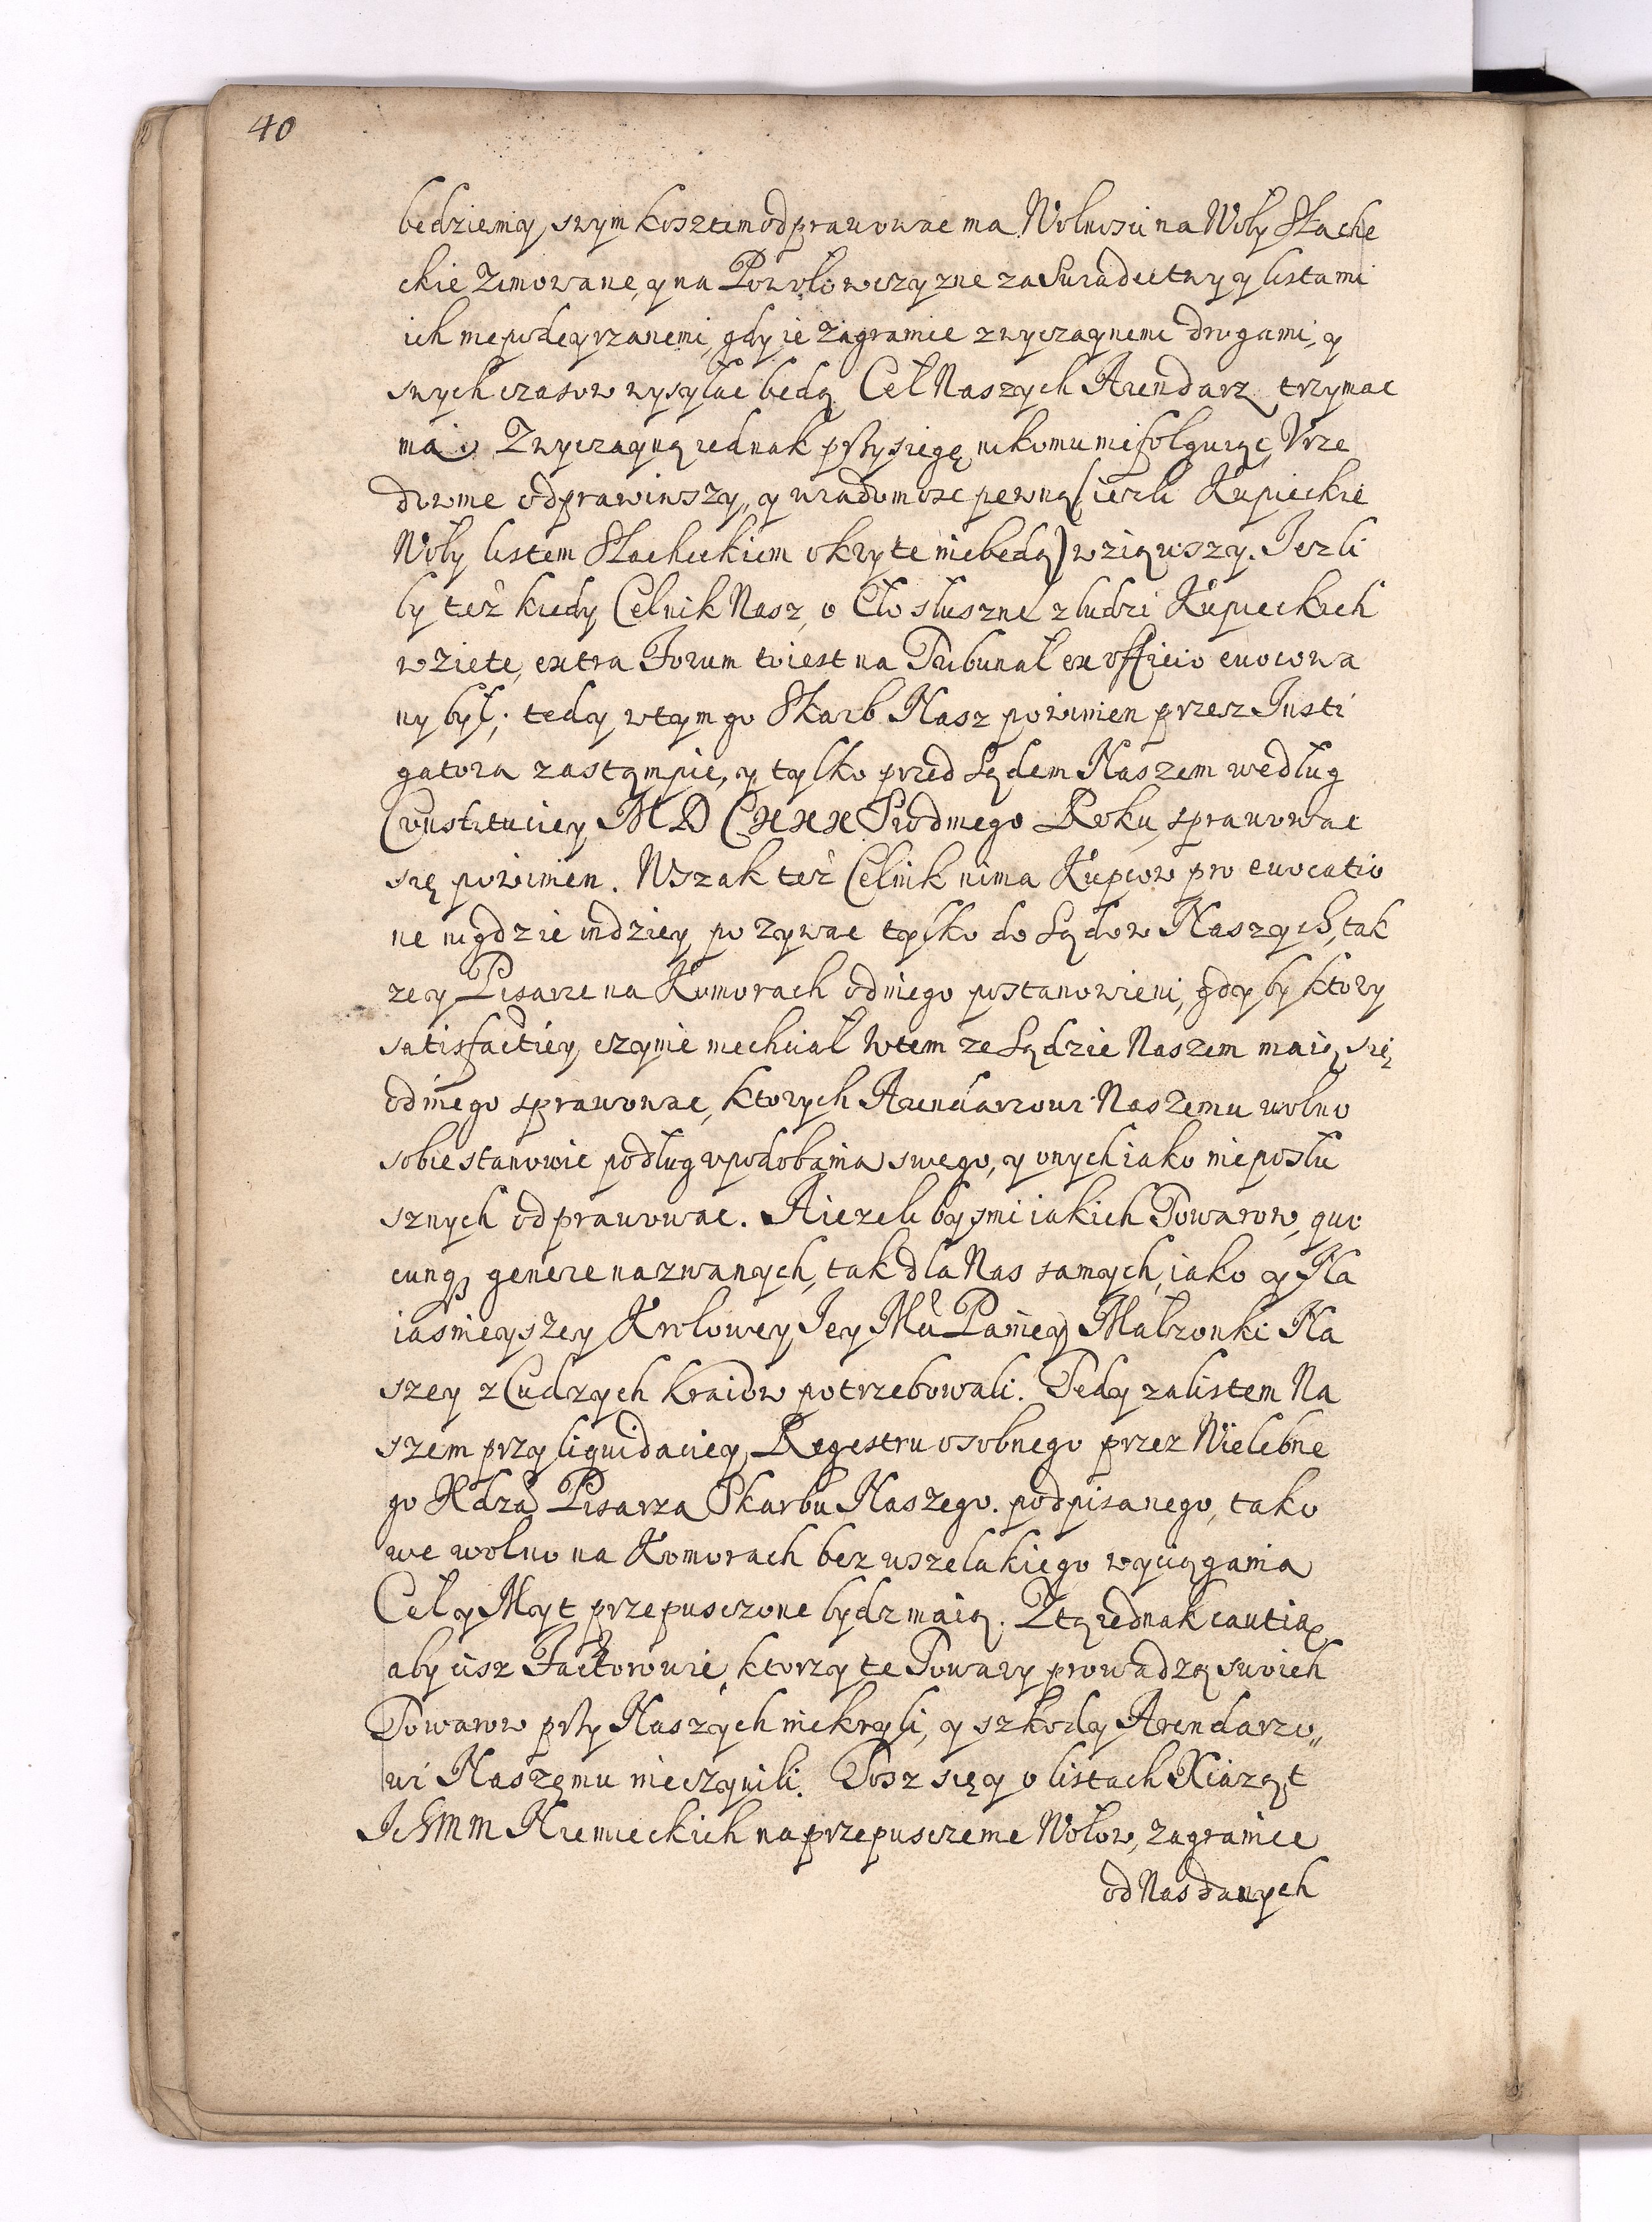 40
będziemy, swym kosztem odprawowac ma. Wolnosci na Woły Szlache
ckie Zimowane, y na Powołowczyzne za Swiadectwy y listami
ich niepodeyrzanemi, gdy ie zagranice zwyczaynemi drogami, y
swych czasow wysyłac będą Ceł Naszych Arendarz, trzymac
ma. Zwyczayną iednak przysięgę nikomu niefolguiąc, Vrze
downie odprawiwszy, y wiadomosc pewną (iezli Kupieckie
Woły listem Szlacheckiem okryte niebędą) wziąwszy. Iezli
by też kiedy Celnik Nasz, o Cło słuszne z ludzi Kupieckich
wzięte, extra Forum to iest na Tribunał ex officio evocowa
ny był; tedy wtym go Skarb Nasz powinien przez Insti
gatora zastąmpic, y tylko przed Sądem Naszem według
Constituciey MDCXXX Siodmego Roku, sprawowac
się powinien. Wszak też Celnik nima Kupcow pro evocatio
ne nigdzie indziey pozywac tylko do Sądow Naszych, tak
ze y Pisarze na Komorach odniego postanowieni, gdyby ktory
satisfactiey czynic niechciał wtem ze Sądzie Naszem maią się
odniego sprawowac, ktorych Arendarzowi Naszemu wolno
sobie stanowic podług vpodobania swego, y onych iako nieposłu
sznych odprawowac. A iezeli bysmi iakich Towarow, quo
cunqꝫ genere nazwanych, tak dla Nas samych, iako y Na
iasnieyszey Krolowey Iey Mci Paniey Małzonki Na
szey z Cudzych kraiow potrzebowali. Tedy za listem Na
szem przy liquidaciey Regestru osobnego przez Wielebne
go Xdza Pisarza Skarbu Naszego podpisanego, tako
we wolno na Komorach bez wszelakiego wyciągania
Ceł y Myt przepusczone bydz maią. Ztą iednak cautią
aby cisz Factorowie, ktorzy te Towary prowadzą swoich
Towarow przy Naszych niekryli, y szkody Arendarzo„
wi Naszemu nieczynili. Tosz się y o listach Xiążąt
IchMM Niemieckich na przepusczenie Wołow, zagranice
od Nas danych